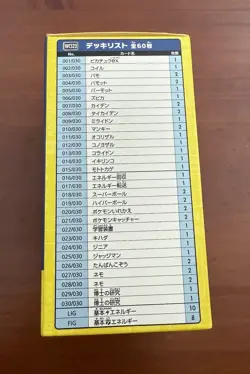 WCS23 デッキリスト 全60枚
No. カード名 枚数
001/030 ピカチュウex 1
002/030 コイル 2
003/030 パモ 2
004/030 パモット 1
005/030 パーモット 1
006/030 ズピカ 1
007/030 カイデン 2
008/030 タイカイデン 2
009/030 ミライドン 1
010/030 マンキー 2
011/030 オコリザル 1
012/030 コノヨザル 1
013/030 コライドン 1
014/030 イキリンコ 1
015/030 モトトカゲ 2
016/030 エネルギー回収 1
017/030 エネルギー転送 1
018/030 スーパーボール 2
019/030 ハイパーボール 2
020/030 ポケモンいれかえ 2
021/030 ポケモンキャッチャー 2
022/030 学習装置 1
023/030 キハダ 1
024/030 ジニア 1
025/030 ジャッジマン 2
026/030 たんぱんこぞう 2
027/030 ネモ
028/030 ネモ 2
029/030 博士の研究 1
030/030 博士の研究 1
LIG 基本エネルギー 10
FIG 基本エネルギー 8